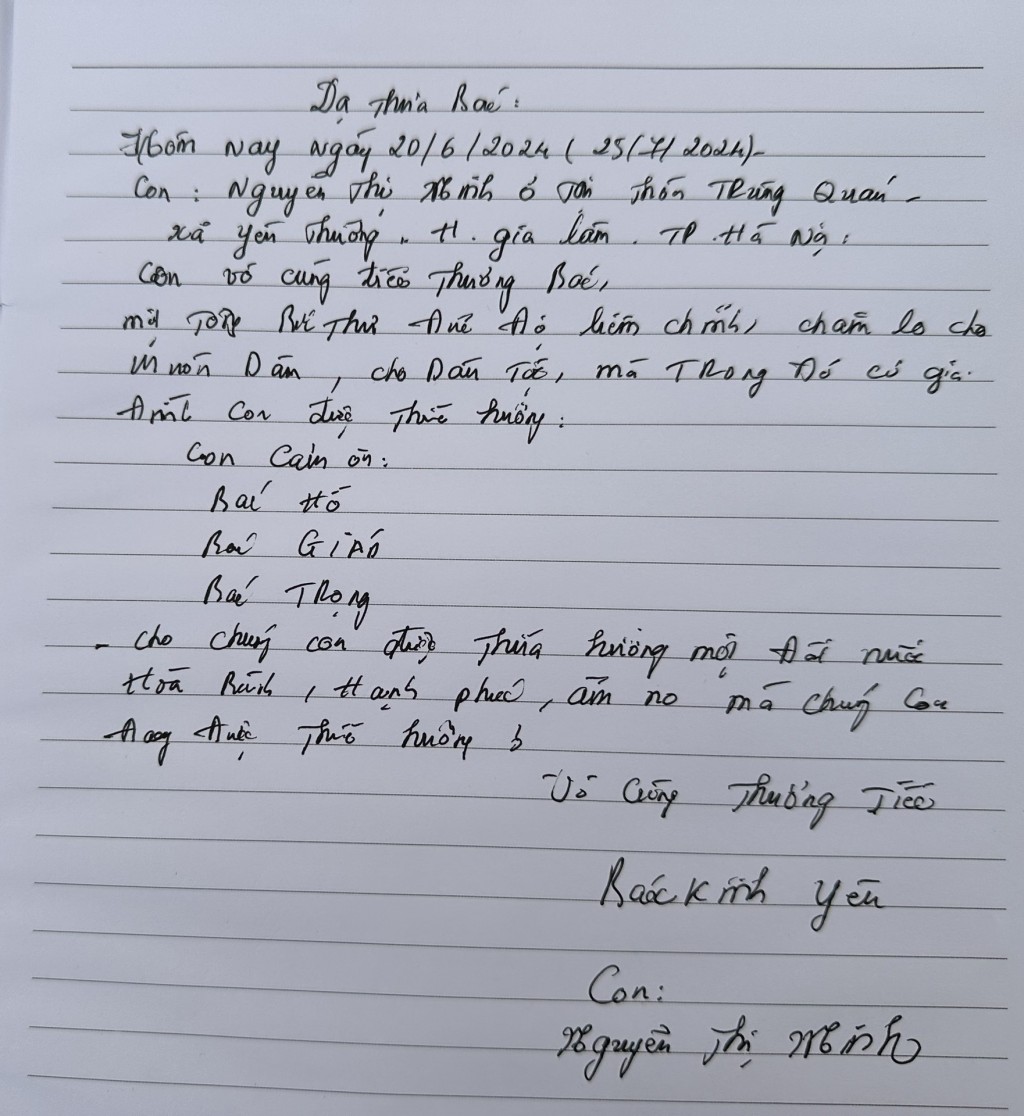 Dạ thưa Bác:
Hôm nay ngày 20/6/2024 (25/7/2024)-
Con: Nguyễn Thị Minh ở tại thôn Trùng Quán -
xã yên thường, H. gia lâm. TP. Hà Nội:
Con vô cùng tiếc thương Bác,
một Tổng Bí Thư liêm chính, chăm lo cho
muôn Dân, cho Dân Tộc, mà Trong Đó có gia
đình con được thừa hưởng:
Con cảm ơn:
Bác Hồ
Bác GIÁP
Bác TRọng
- cho chúng con được thừa hưởng một Đất nước
Hoà Bình, Hạnh phúc, ấm no mà chúng con
đang được thừa hưởng
Vô Cùng Thương Tiếc
Bác Kính yêu
Con:
Nguyễn Thị Minh